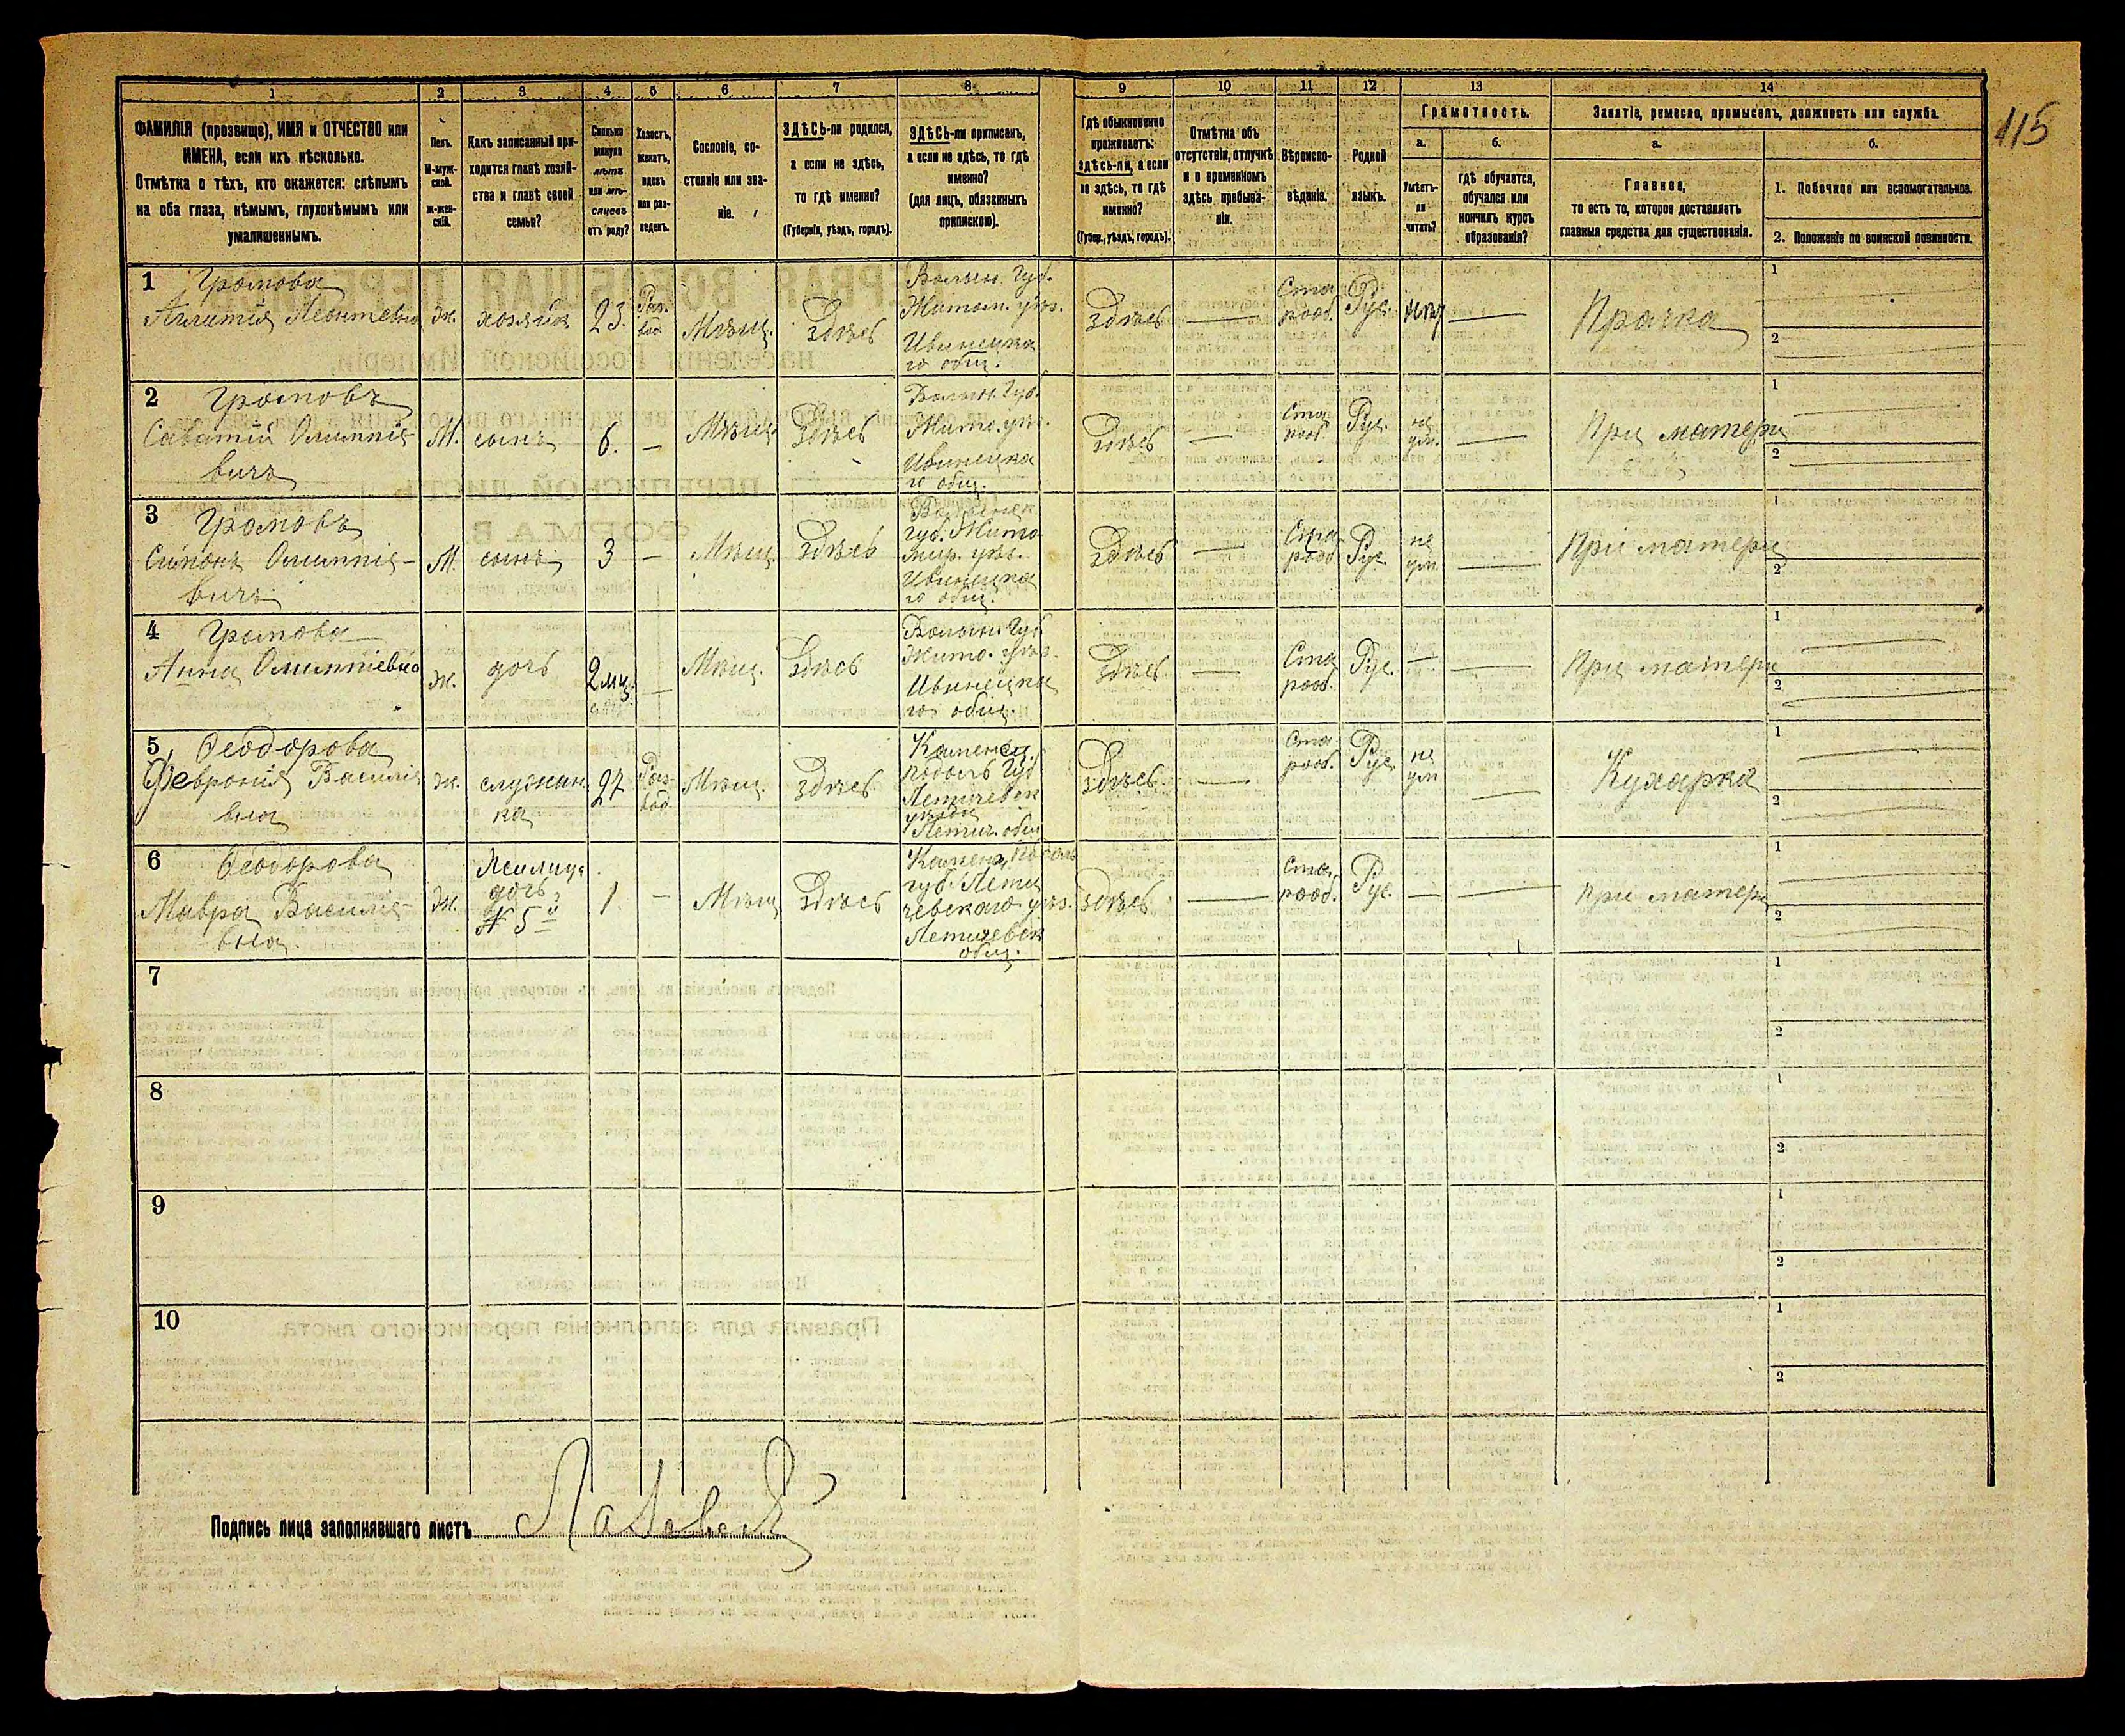 115
1 2 3 4 5 6 7 8 9 10 11 12 13 14
ФАМИЛІЯ (прозвище), ИМЯ и ОТЧЕСТВО или
ИМЕНА, если ихъ нѣсколько.
Отмѣтка о тѣхъ, кто окажется: слѣпымъ
на оба глаза, нѣмымъ, глухонѣмымъ или
умалишеннымъ.
Полъ.
М-муж-
ской.
ж-жен-
скій.
Какъ записанный при-
ходится главѣ хозяй-
ства и главѣ своей
семьи?
Сколько
минуло
лѣтъ
или мѣ-
сяцевъ
отъ роду?
Холостъ,
женатъ,
вдовъ
или раз-
веденъ.
Сословіе, со-
стояніе или зва-
ніе.
ЗДѢСЬ-ли родился,
а если не здѣсь,
то гдѣ именно?
(Губернія, уѣздъ, городъ).
ЗДѢСЬ-ли приписанъ,
а если не здѣсь, то гдѣ
именно?
(для лицъ, обязанныхъ
припискою).
Гдѣ обыкновенно
проживаетъ:
здѣсь-ли, а если
не здѣсь, то гдѣ
именно?
(Губер., уѣздъ, городъ).
Отмѣтка объ
отсутствіи, отлучкѣ
и о временномъ
здѣсь пребыва-
ніи.
Вѣроиспо-
вѣданіе.
Родной
языкъ.
Грамотность.
а.
Умѣетъ-
ли
читать?
б.
гдѣ обучается,
обучался или
кончилъ курсъ
образованія?
Занятіе, ремесло, промыселъ, должность или служба.
а.
Главное,
то есть то, которое доставляетъ
главныя средства для существованія.
б.
1. Побочное или вспомогательное.
2. Положеніе по воинской повинности.
1
Громова
Леонтевна
ж.
хозяйка
23.
Раз-
вод.
Мѣщ.
Здѣсь
Волын. Губ.
Житом. уѣз.
Ивницка
го общ.
Здѣсь
Ста
рооб.
Рус.
нѣт
Прачка
1
2
2
Громовъ
Саватій Олимпіе-
вичъ
М.
сынъ
6.
Мѣщ.
Здѣсь
Волын. Губ.
Жито. уѣз.
Ивницка
го общ.
Здѣсь
Ста
рооб
Рус.
не
ум.
При матери
1
2
3
Громовъ
Симонъ Олимпіе-
вичъ
М.
сынъ
3
Мѣщ.
Здѣсь
Волынск
губ. Жито
мир. уѣз.
Ивницка
го общ.
Здѣсь
Ста
рооб
Рус
не
ум
При матери
1
2
4
Громова
Анна Олимпіевна
ж.
дочь
2 мц.
Мѣщ.
Здѣсь
Волын. Губ
Жито. уѣз.
Ивницка
го общ.
Здѣсь
Ста
рооб.
Рус.
При матери
1
2
5
Ѳеодорова
Февронія Василіе
вна
ж.
служан
ка
27
Раз-
вод.
Мѣщ.
Здѣсь
Каменец
подоль Губ
Летичевск
уѣзда
Летич. общ
Здѣсь
Ста
рооб.
Рус.
не
ум
Кухарка
1
2
6
Ѳеодорова
Мавра Василіе-
вна
ж.
дочь
№ 5
1.
Мѣщ
Здѣсь
Камен. подоль
губ. Лети
чевскаго уѣз.
Летичевск
общ.
Здѣсь
Ста
рооб.
Рус.
При матери
1
2
7
1
2
8
1
2
9
1
2
10
1
2
Подпись лица заполнявшаго листъ